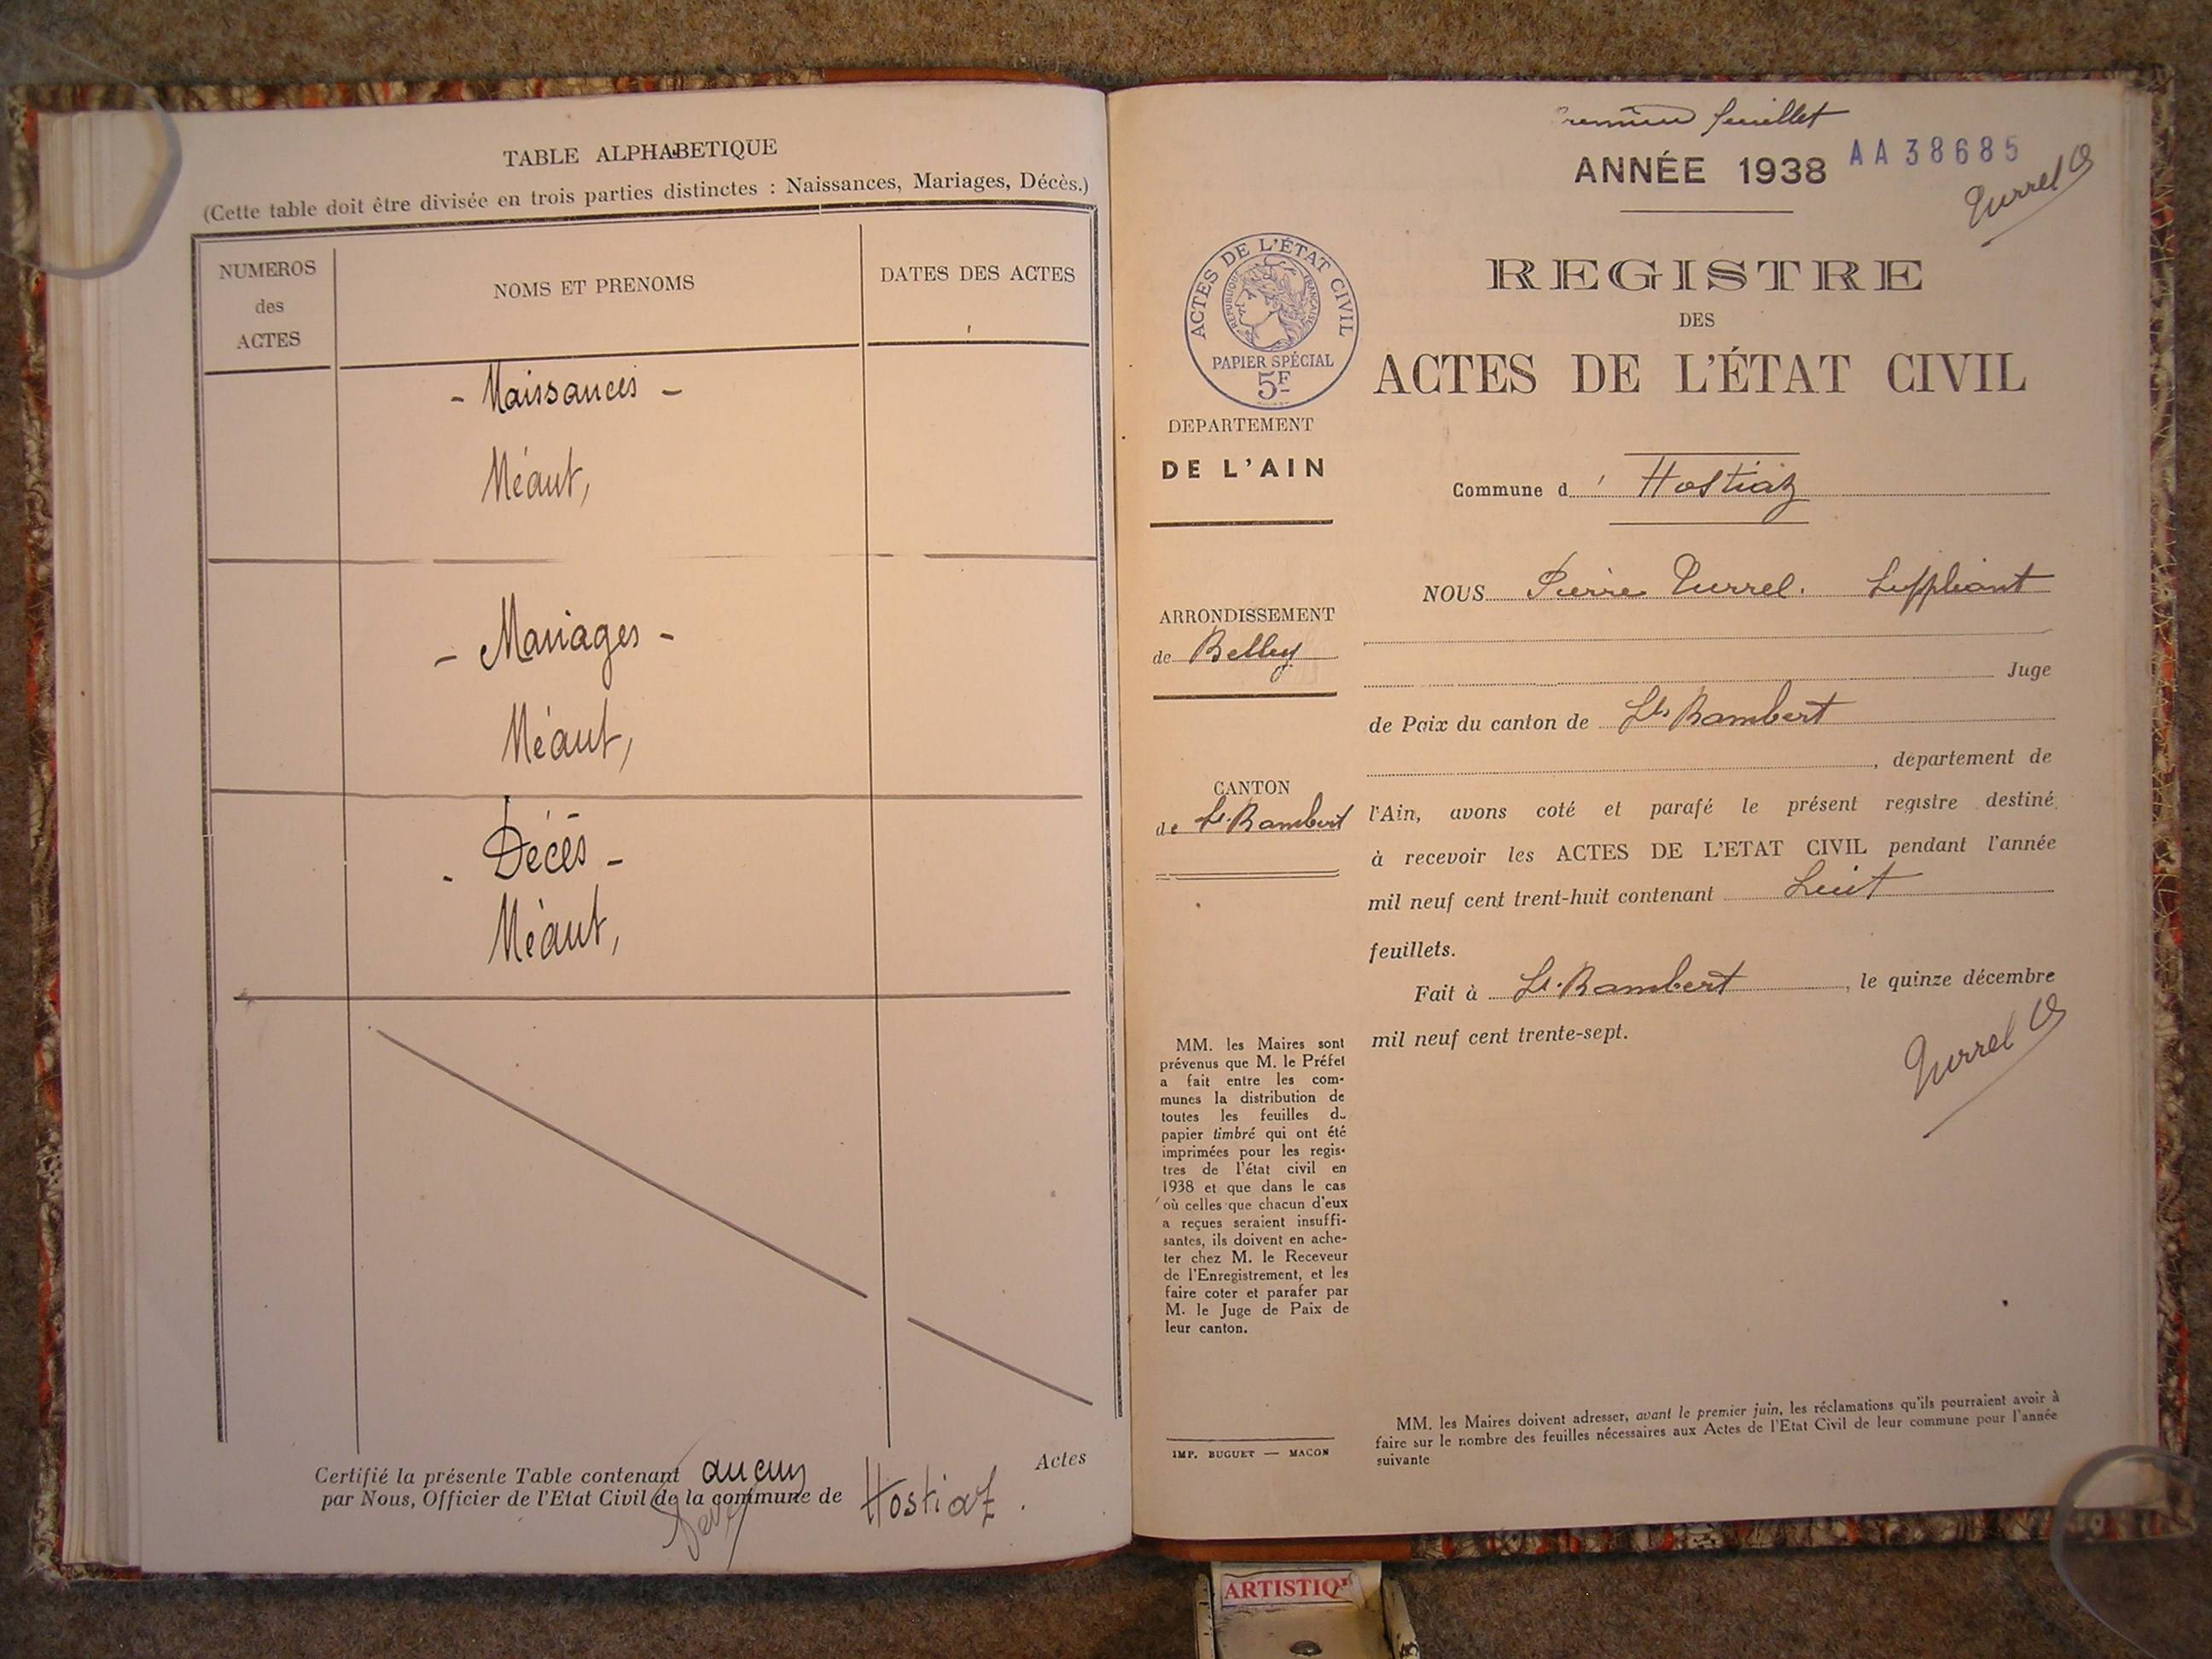 TABLE ALPHABETIQUE
(Cette table doit être divisée en trois parties distinctes : Naissances, Mariages, Décès.)
NUMEROS
des
ACTES
NOMS ET PRENOMS
DATES DES ACTES
- Naissances -
Néant,
- Mariages -
Néant,
- Décès -
Néant,
Certifié la présente Table contenant aucun Actes
par Nous, Officier de l'Etat Civil de la commune de Hostiaz.
Premier feuillet
ANNÉE 1938 AA38685
Turrel
REGISTRE
DES
ACTES DE L'ÉTAT CIVIL
ACTES DE L'ÉTAT CIVIL
REPUBLIQUE FRANÇAISE
PAPIER SPÉCIAL
5F
DEPARTEMENT
DE L'AIN
ARRONDISSEMENT
de Belley
CANTON
de St. Rambert
Commune d' Hostiaz
NOUS Pierre Turrel. Suppléant
Juge
de Paix du canton de St. Rambert
, département de
l'Ain, avons coté et parafé le présent registre destiné
à recevoir les ACTES DE L'ETAT CIVIL pendant l'année
mil neuf cent trent-huit contenant huit
feuillets.
Fait à St. Rambert, le quinze décembre
mil neuf cent trente-sept.
Turrel
MM. les Maires sont
prévenus que M. le Préfet
a fait entre les com-
munes la distribution de
toutes les feuilles de
papier timbré qui ont été
imprimées pour les regis-
tres de l'état civil en
1938 et que dans le cas
où celles que chacun d'eux
a reçues seraient insuffi-
santes, ils doivent en ache-
ter chez M. le Receveur
de l'Enregistrement, et les
faire coter et parafer par
M. le Juge de Paix de
leur canton.
IMP. BUGUET — MACON
MM. les Maires doivent adresser, avant le premier juin, les réclamations qu'ils pourraient avoir à
faire sur le nombre des feuilles nécessaires aux Actes de l'Etat Civil de leur commune pour l'année
suivante
ARTISTIQ